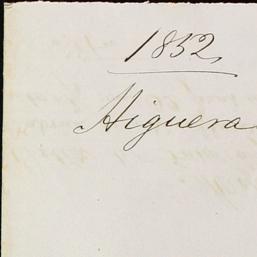 1832
Higuera